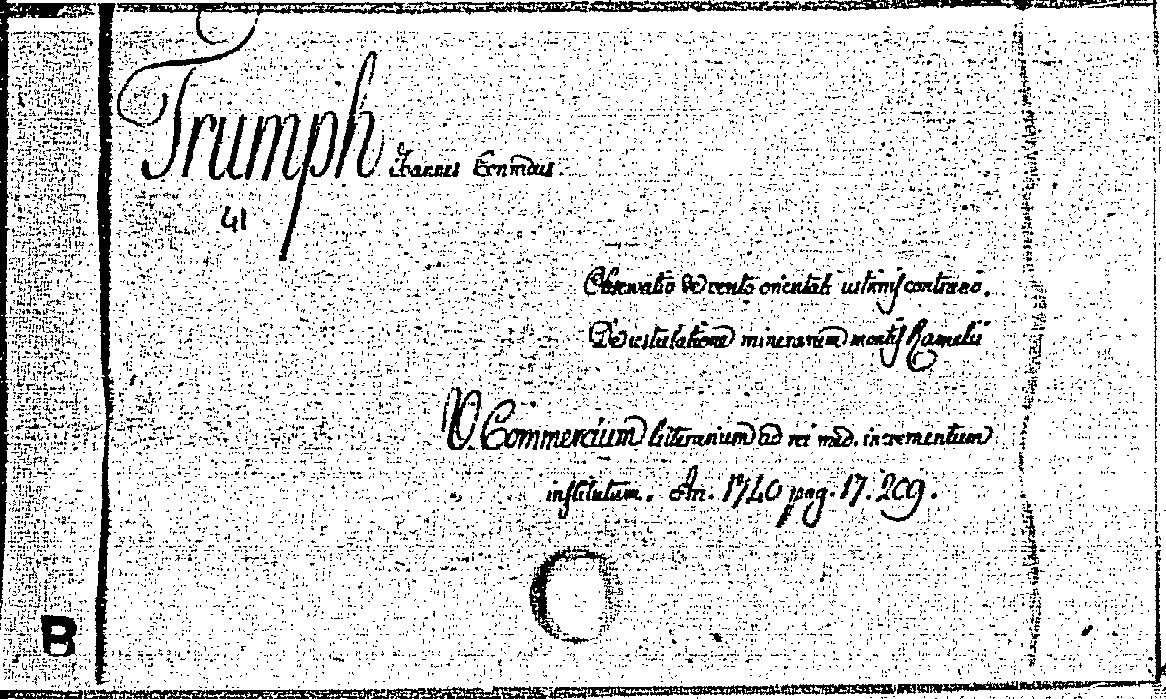 Trumph Joannes Conradus.
41
Observatio De vento orientali ustionis contrario.
De ustulatione minerarum montis Ramelii
V. Commercium litterarium ad rei med. incrementum
institutum. An. 1740 pag. 17. 209.
B